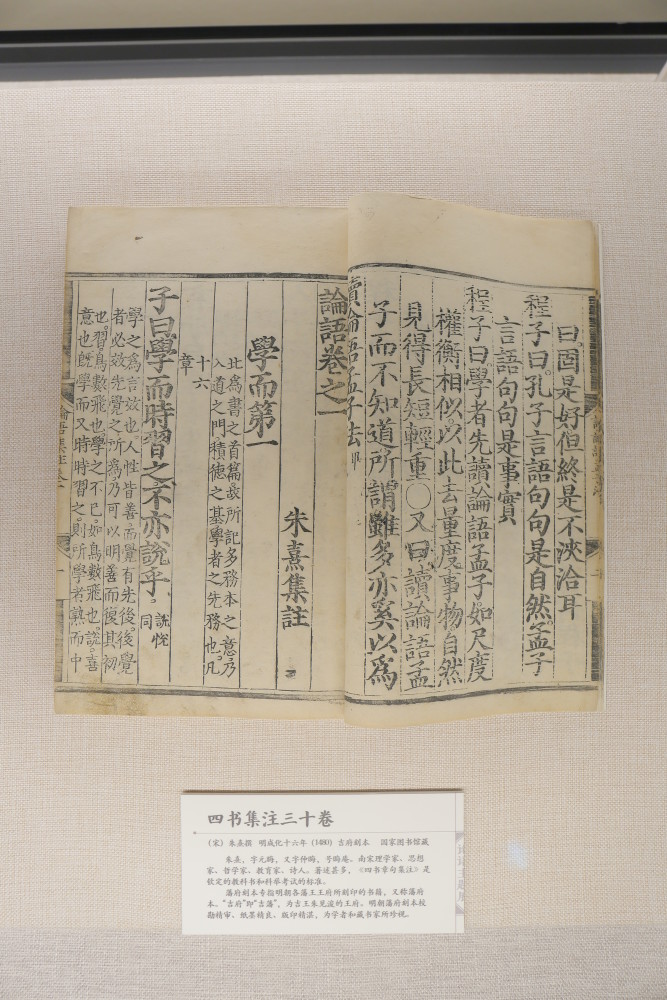 曰固是好但終是不浹洽耳
程子曰孔子言語句句是自然孟子
言語句句是事實
程子曰學者先讀論語孟子如尺度
權衡相似以此去量度事物自然
見得長短輕重〇又曰讀論語孟
子而不知道所謂雖多亦奚以為
讀論語孟子法
論語卷之一
朱熹集註
學而第一
此為書之首篇故所記多務本之意乃
入道之門積德之基學者之先務也凡
十六
章
子曰學而時習之不亦說乎
說悅
同
學之為言效也人性皆善而覺有先後後覺
者必效先覺之所為乃可以明善而復其初
也習鳥數飛也學之不已如鳥數飛也說喜
意也既學而又時時習之則所學者熟而中
四书集注三十卷
(宋) 朱熹撰 明成化十六年 (1480) 吉府刻本 国家图书馆藏
朱熹，字元晦，又字仲晦，号晦庵。南宋理学家、思想
家、哲学家、教育家、诗人。著述甚多，《四书章句集注》是
钦定的教科书和科举考试的标准。
藩府刻本专指明朝各藩王王府所刻印的书籍，又称藩府
本。“吉府”即“吉藩”，为吉王朱见浚的王府。明朝藩府刻本校
勘精审、纸墨精良、版印精湛，为学者和藏书家所珍视。